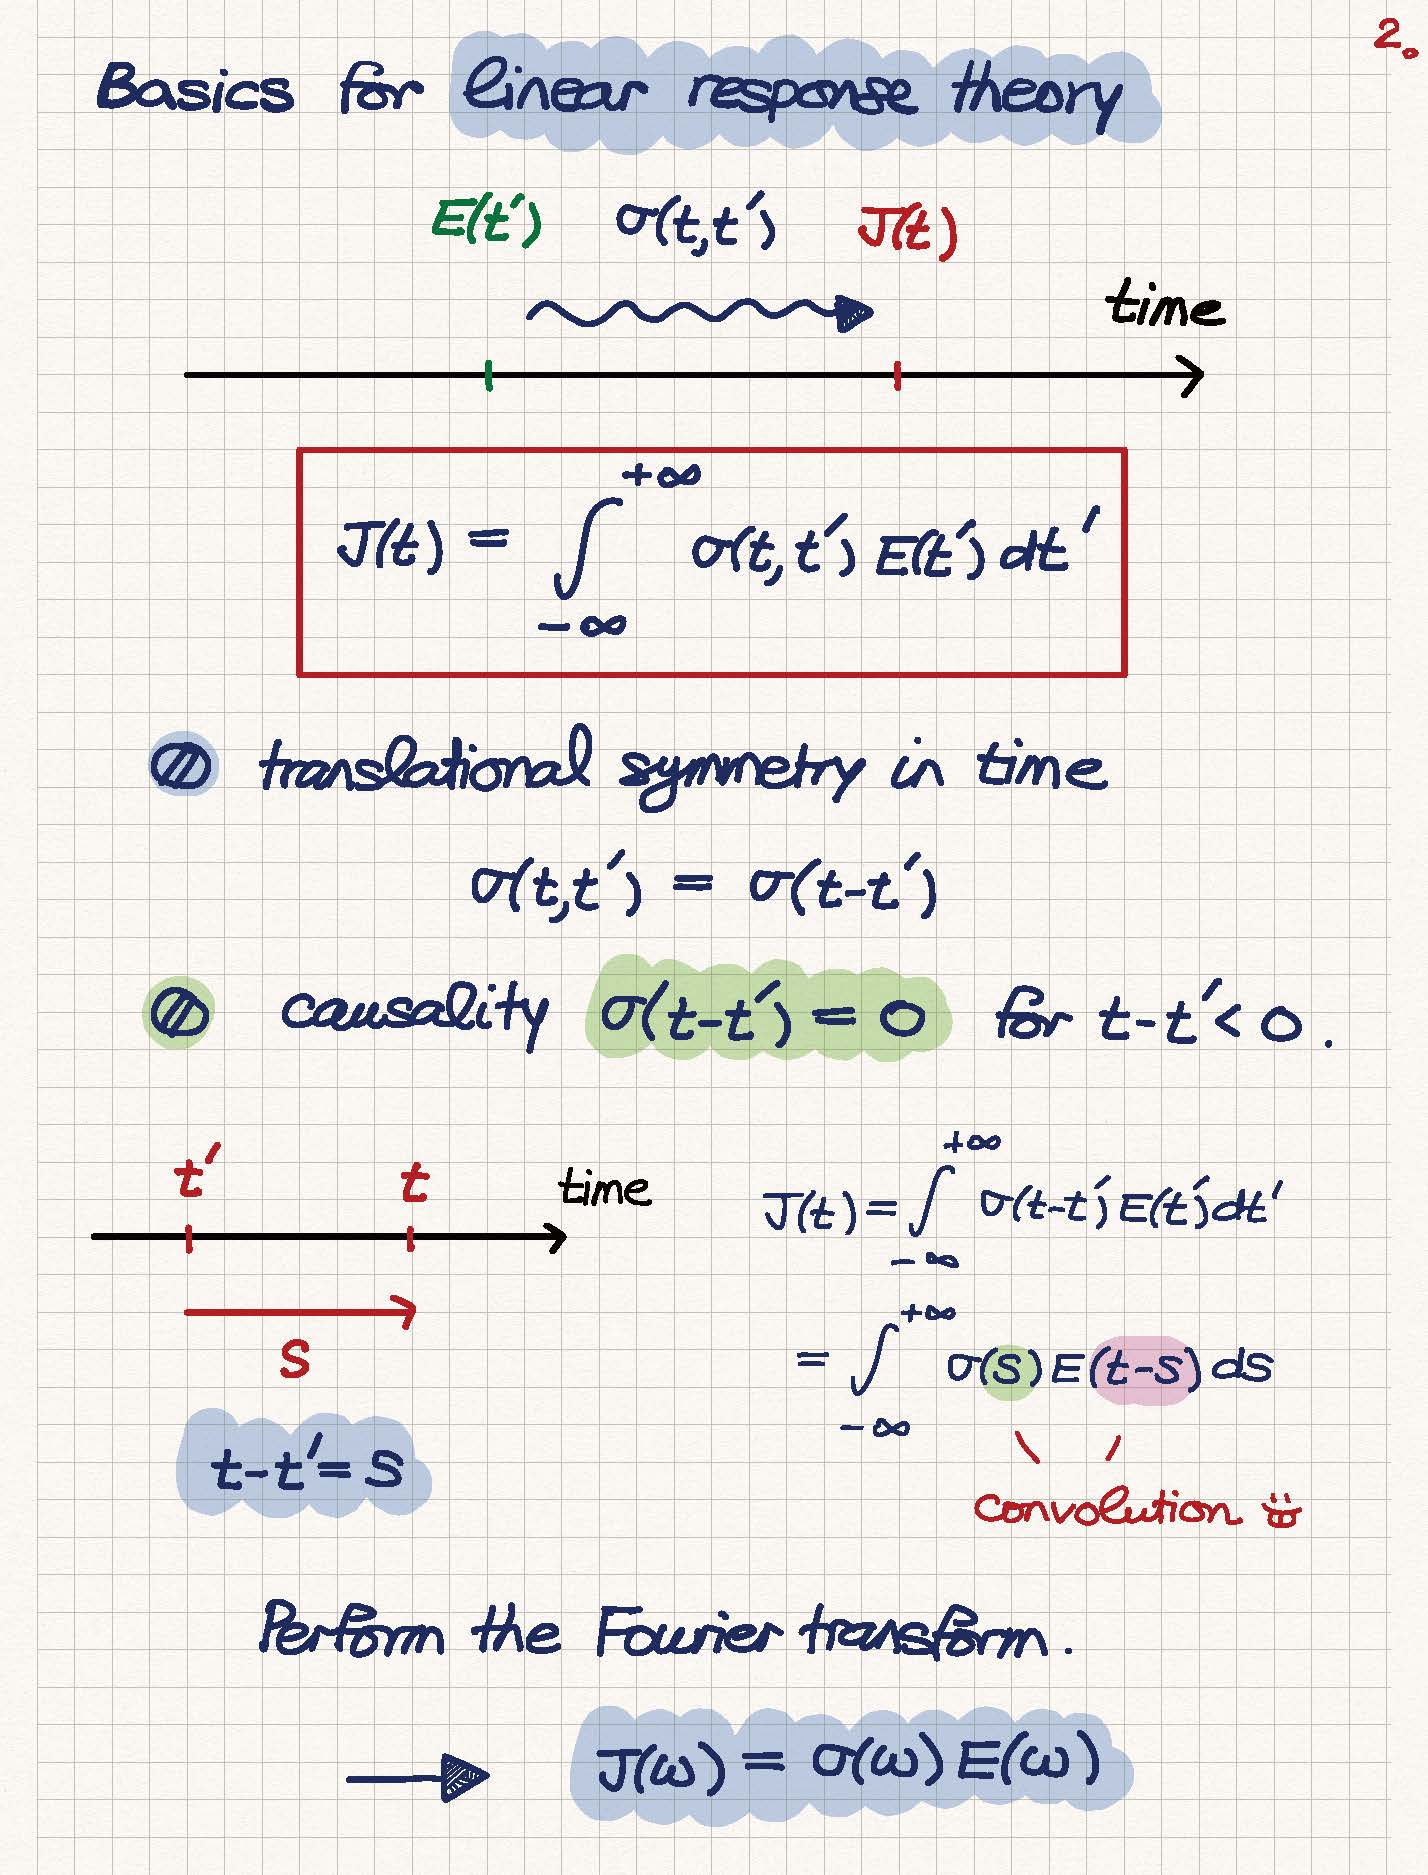 2.
Basics for linear response theory
E(t′) σ(t,t′) J(t)
time
J(t) = ∫_{-∞}^{+∞} σ(t,t′) E(t′) dt′
translational symmetry in time
σ(t,t′) = σ(t-t′)
causality σ(t-t′) = 0 for t-t′ < 0.
t′ t time
s
t-t′ = s
J(t) = ∫_{-∞}^{+∞} σ(t-t′) E(t′) dt′
= ∫_{-∞}^{+∞} σ(s) E(t-s) ds
convolution
Perform the Fourier transform.
J(ω) = σ(ω) E(ω)